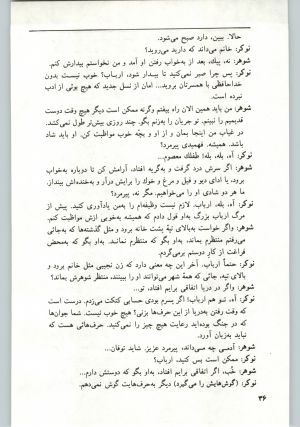 حالا. ببین، دارد صبح می‌شود.
نوکر: خانم می‌داند که دارید می‌روید؟
شوهر: نه، پیک، بعد از به‌خواب رفتن او آمد و من نخواستم بیدارش کنم.
نوکر: پس چرا صبر نمی‌کنید تا بیدار شود، ارباب؟ خوب نیست بدون
خداحافظی با همسرتان بروید... امان از نسل جدید که هیچ بوئی از ادب
نبرده است.
شوهر: من باید همین الان راه بیفتم وگرنه ممکن است دیگر هیچ وقت دوست
قدیمیم را نبینم. تو جریان را به‌زنم بگو. چند روزی بیش‌تر طول نمی‌کشد.
در غیاب من اینجا بمان و از او و بچه خوب مواظبت کن. او باید شاد
باشد. همیشه. فهمیدی پیرمرد؟
نوکر: آه، بله، بله! طفلك معصوم...
شوهر: اگر سرش درد گرفت و به‌گریه افتاد، آرامش کن تا دوباره به‌خواب
برود، با ادای دیو و فیل و مرغ و خولد را برایش درآر و به‌خنده‌اش بینداز.
ما هر دو شادی او را می‌خواهیم مگر نه، پیرمرد؟
نوکر: آه، بله، ارباب. لازم نیست وظیفه‌ام را به‌من یادآوری کنید. پیش از
مرگ ارباب بزرگ به‌او قول دادم که همیشه به‌خوبی ازش مواظبت کنم.
شوهر: واگر خواست به‌بالای تپهٔ پشت خانه برود و مثل گذشته‌ها که به‌جائی
می‌رفتم منتظرم بماند، به‌او بگو که منتظرم نماند. به‌او بگو که به‌محض
فراغت از کار دوستم برمی‌گردم.
نوکر: حتماً ارباب. آخر این چه معنی دارد که زن نجیبی مثل خانم برود و
بالای تپه، جائی که همهٔ شهر می‌توانند او را ببینند، منتظر شوهرش بماند؟
شوهر: واگر در دریا اتفاقی برایم افتاد، تو...
نوکر: آه، تو هم ارباب! اگر پسرم بودی حسابی کتکت می‌زدم. درست است
که وقت رفتن به‌دریا از این حرف‌ها بزنی؟ هیچ خوب نیست. شما جوان‌ها
که در جنگ بوده‌اید رعایت هیچ چیز را نمی‌کنید. حرف‌هائی هست که
نباید به‌زبان آورد.
شوهر: آدمی چه می‌داند، پیرمرد عزیز. شاید توفان...
نوکر: ممکن است بس کنید، ارباب؟
شوهر: خُب، اگر اتفاقی برایم افتاد، به‌او بگو که دوستش دارم...
نوکر: (گوش‌هایش را می‌گیرد) دیگر به‌حرف‌هایت گوش نمی‌دهم.
۳۶